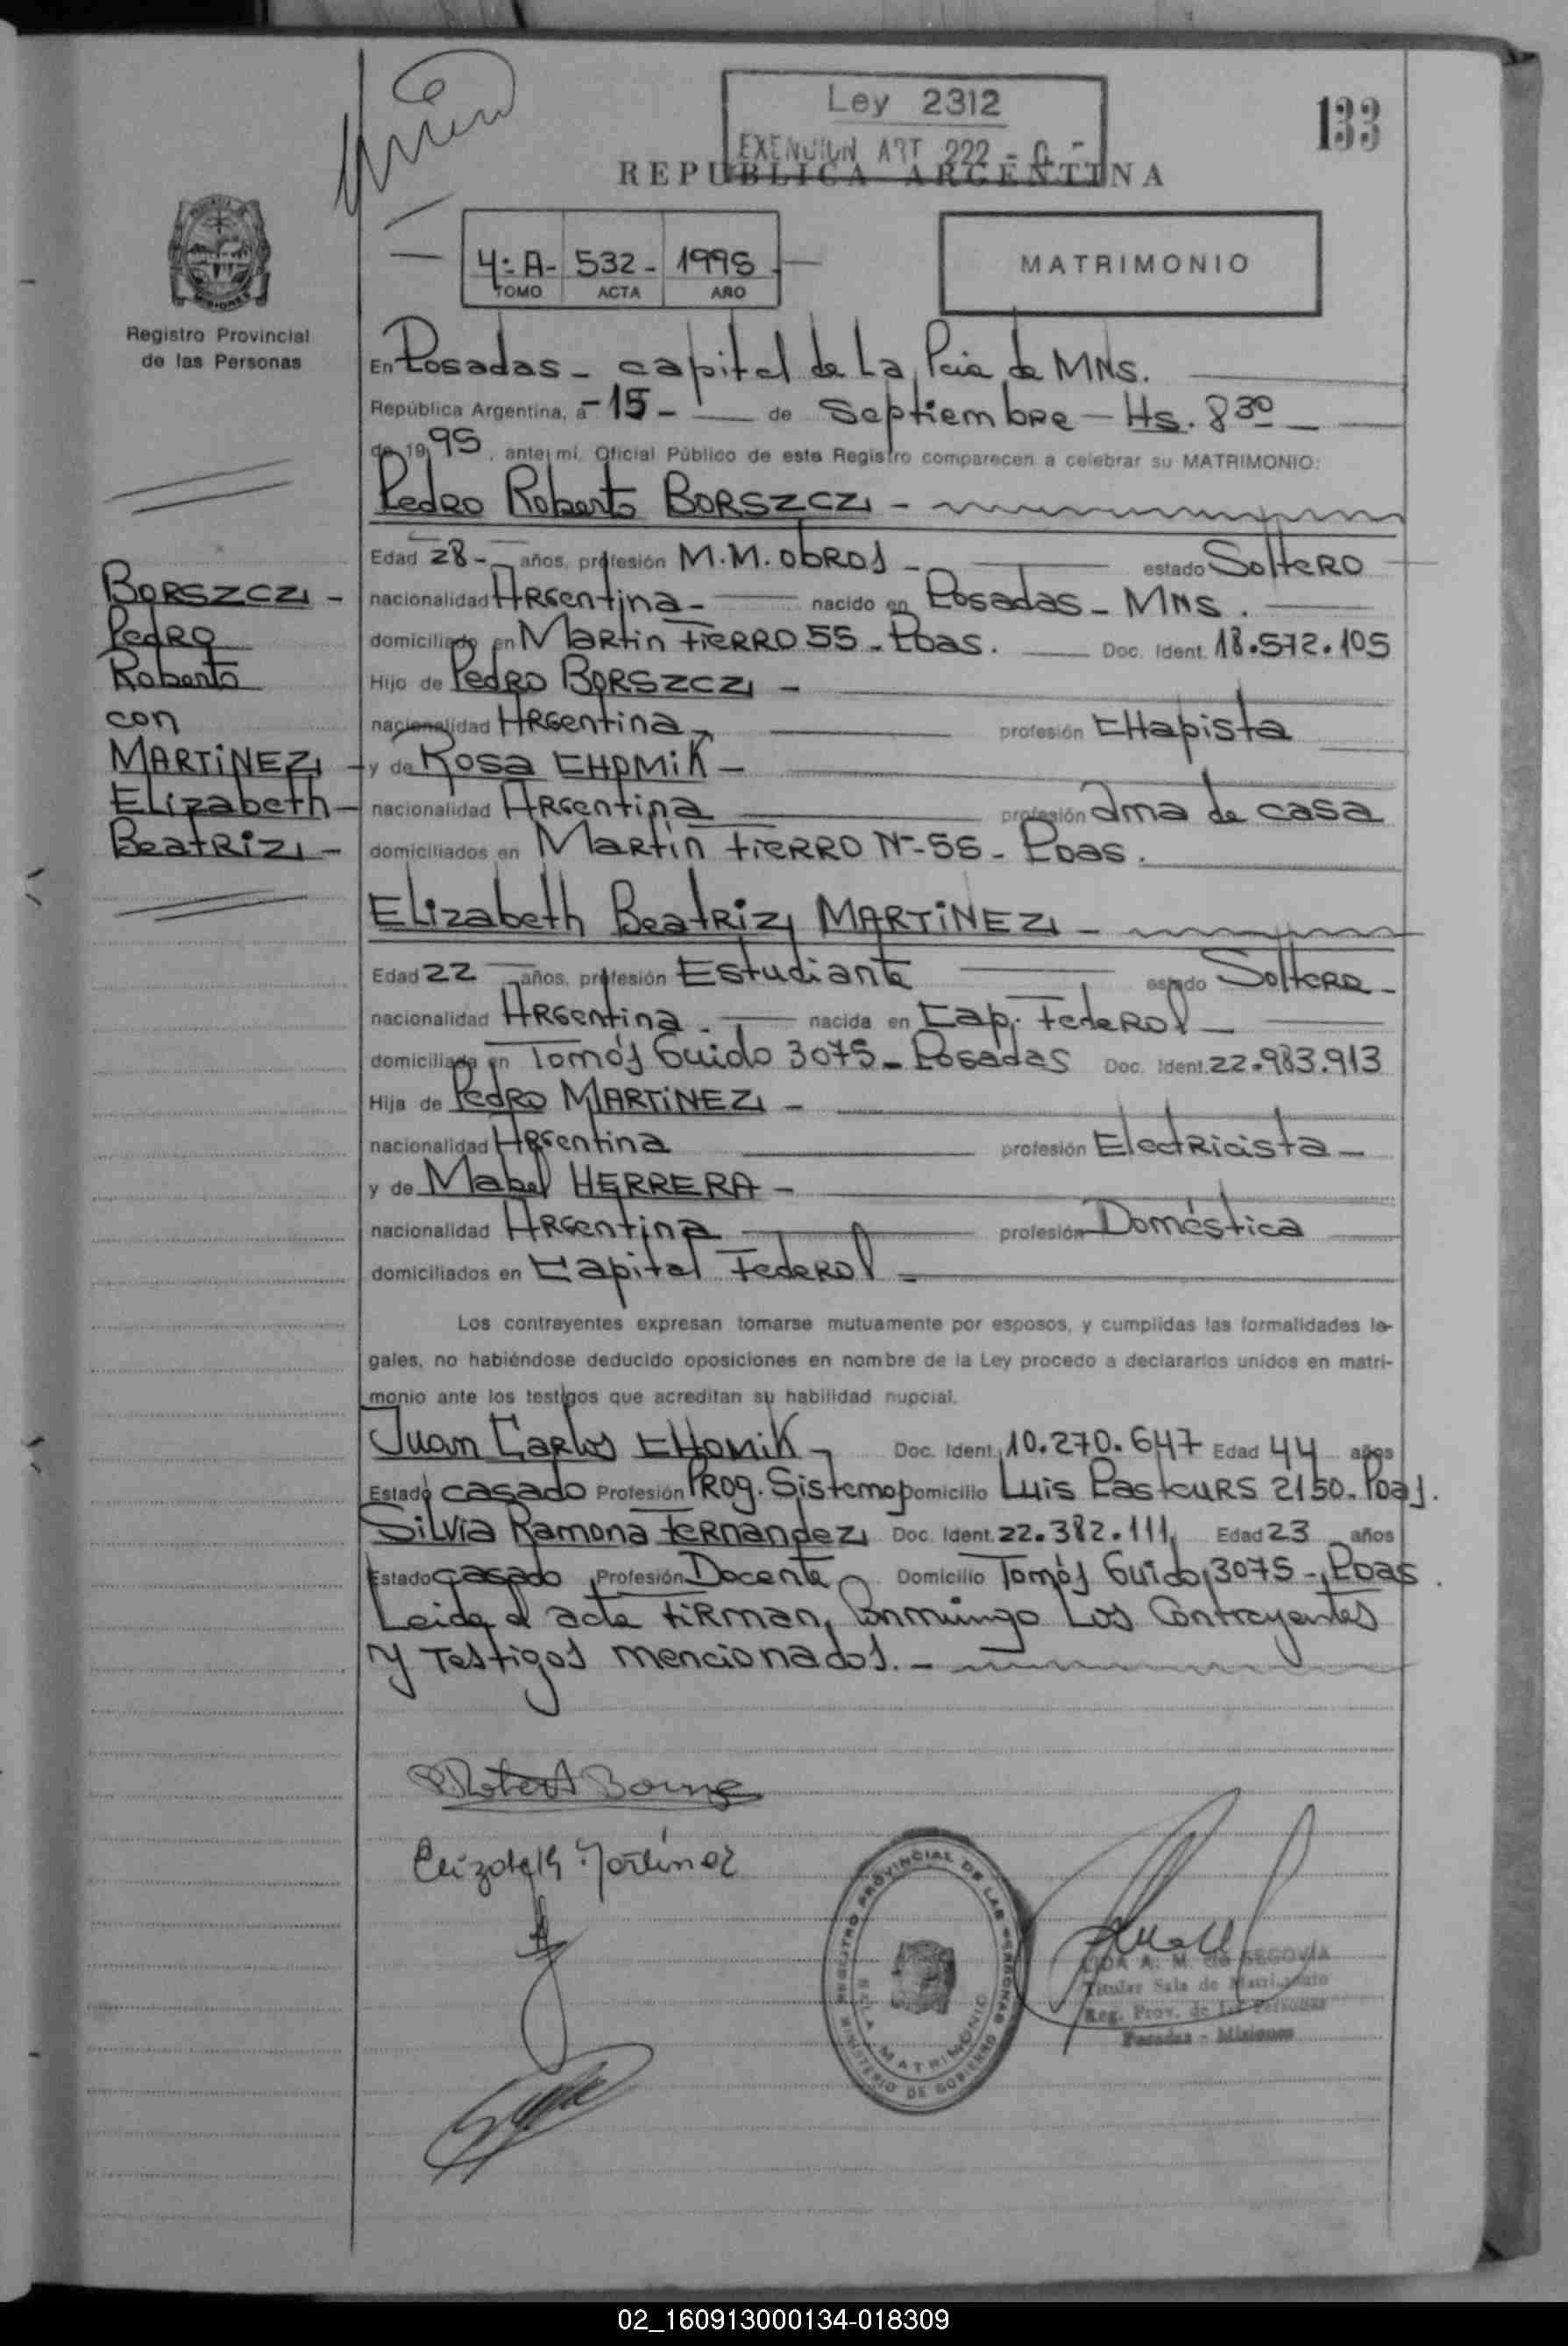 Ley 2312
EXENCION ART 222
133
REPUBLICA ARGENTINA
4º A- 532- 1995
TOMO ACTA AÑO
MATRIMONIO
Registro Provincial
de las Personas
En Posadas - capital de La Pcia de MNS.
República Argentina, a -15- de Septiembre - Hs. 8 30
de 1995, ante mi, Oficial Público de este Registro comparecen a celebrar su MATRIMONIO:
Pedro Roberto BORSZCZ -
Edad 28- años, profesión M.M. obras - estado Soltero
nacionalidad Argentina - nacido en Posadas - MNS.
domiciliado en Martin Fierro 55 - Pdas. Doc. Ident. 18.572.105
Hijo de Pedro BORSZCZ -
nacionalidad Argentina profesión CHapista
y de Rosa CHOMIK -
nacionalidad Argentina profesión Ama de casa
domiciliados en Martín Fierro Nº 55 - Pdas.
BORSZCZ -
Pedro
Roberto
con
MARTINEZ
Elizabeth -
Beatriz -
Elizabeth Beatriz MARTINEZ -
Edad 22 años, profesión Estudiante estado Soltera -
nacionalidad Argentina - nacida en Cap. Federal -
domiciliada en Tomás Guido 3075 - Posadas Doc. Ident. 22.983.913
Hija de Pedro MARTINEZ -
nacionalidad Argentina profesión Electricista -
y de Mabel HERRERA -
nacionalidad Argentina profesión Doméstica
domiciliados en Capital Federal -
Los contrayentes expresan tomarse mutuamente por esposos, y cumplidas las formalidades le-
gales, no habiéndose deducido oposiciones en nombre de la Ley procedo a declararlos unidos en matri-
monio ante los testigos que acreditan su habilidad nupcial.
Juan Carlos CHOMIK - Doc. Ident. 10.270.647 Edad 44 años
Estado casado Profesión Prog. Sistemas Domicilio Luis Pasteurs 2150. Pdas.
Silvia Ramona Fernandez Doc. Ident. 22.382.111 Edad 23 años
Estado casado Profesión Docente Domicilio Tomás Guido 3075 - Pdas.
Leida el acta firman, Conmingo Los Contrayentes
y Testigos mencionados. -
Elizabeth Martinez
REGISTRO PROVINCIAL DE LAS PERSONAS
SALA MATRIMONIO
MINISTERIO DE GOBIERNO
A. M. de SEGOVIA
Titular Sala de Matrimonio
Reg. Prov. de las Personas
Posadas - Misiones
02_160913000134-018309